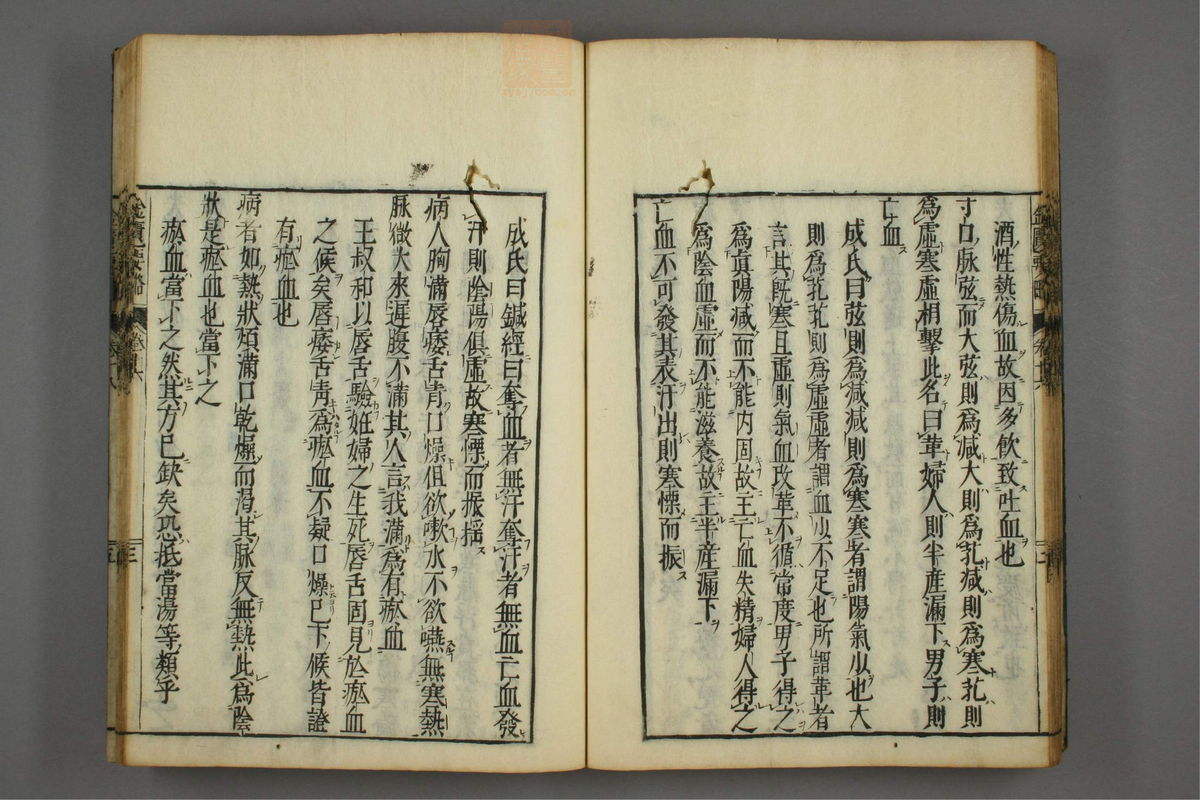 酒性熱傷血故因多飲致吐血也
寸口脉弦而大弦則爲减大則爲芤减則爲寒芤則
爲虚寒虚相擊此名曰革婦人則半産漏下男子則
亡血
成氏曰弦則爲减减則爲寒寒者謂陽氣少也大
則爲芤芤則爲虚虚者謂血少不足也所謂革者
言其既寒且虚則氣血改革不循常度男子得之
爲真陽减而不能内固故主亡血失精婦人得之
爲陰血虚而不能滋養故主半産漏下
亡血不可發其表汗出則寒慄而振
成氏曰鍼經曰奪血者無汗奪汗者無血亡血發
汗則陰陽俱虚故寒慄而振揺
病人胸滿唇痿舌青口燥但欲嗽水不欲嚥無寒熱
脉微大来遅腹不滿其人言我滿爲有瘀血
王叔和以唇舌驗妊婦之生死唇舌固見於瘀血
之候矣唇痿舌青爲瘀血不凝口燥已下候皆證
有瘀血也
病者如熱狀煩滿口乾燥而渴其脉反無熱此爲陰
狀是瘀血也當下之
瘀血當下之然其方已缺矣恐抵當湯等類乎
金匱要略